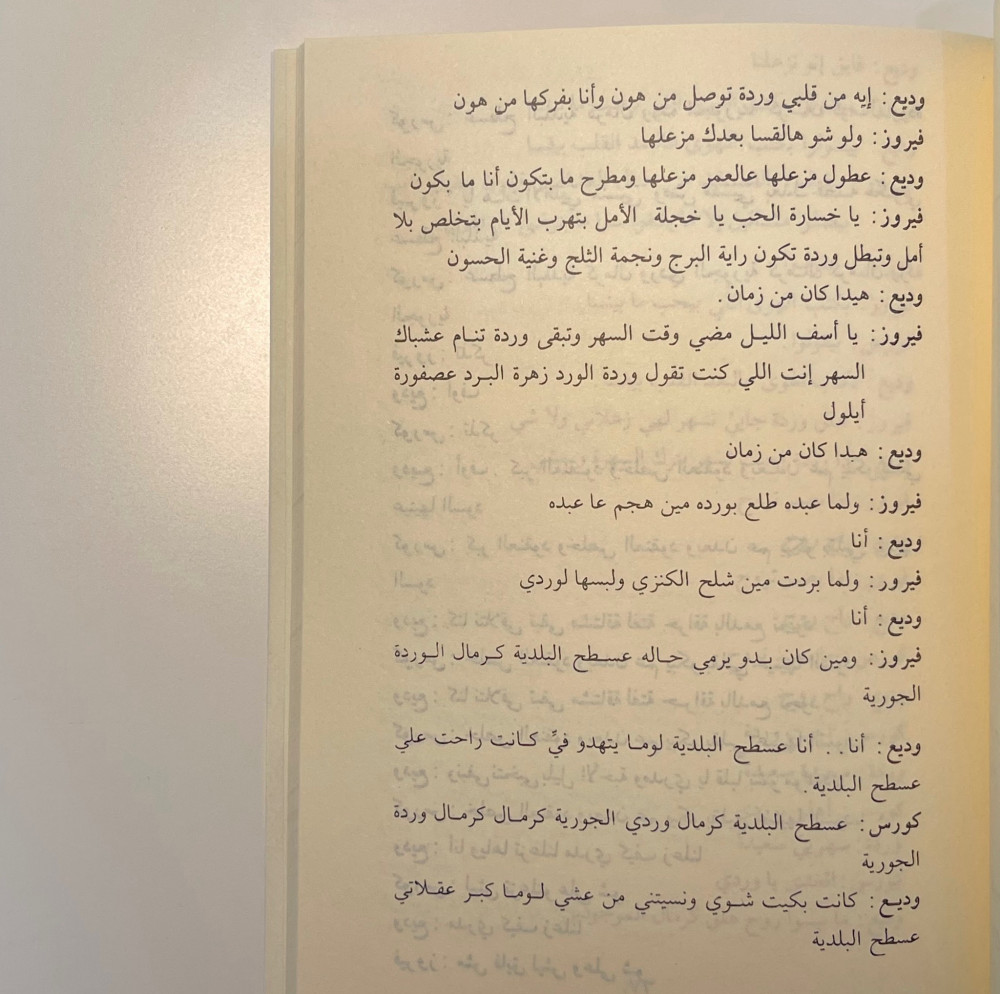 وديع: إيه من قلبي وردة توصل من هون وأنا بفركها من هون
فيروز: ولو شو هالقسا بعدك مزعلها
وديع: عطول مزعلها عالعمر مزعلها ومطرح ما بتكون أنا ما بكون
فيروز: يا خسارة الحب يا خجلة الأمل بتهرب الأيام بتخلص بلا
أمل وتبطل وردة تكون راية البرج ونجمة الثلج وغنية الحسون
وديع: هيدا كان من زمان.
فيروز: يا أسف الليل مضي وقت السهر وتبقى وردة تنام عشباك
السهر إنت اللي كنت تقول وردة الورد زهرة البرد عصفورة
أيلول
وديع: هبدا كان من زمان
فيروز: ولما عبده طلع بورده مين هجم عا عبده
وديع: أنا
فيرور: ولما بردت مين شلح الكنزي ولبسها لوردي
وديع: أنا
فيروز: ومين كان بدو يرمي حاله عسطح البلدية كرمال الوردة
الجورية
وديع: أنا.. أنا عسطح البلدية لوما يتهدو فيِّ كانت راحت علي
عسطح البلدية.
كورس: عسطح البلدية كرمال وردي الجورية كرمال كرمال وردة
الجورية
وديع: كانت بكيت شوي ونسيتني من عشي لوما كبر عقلاتي
عسطح البلدية